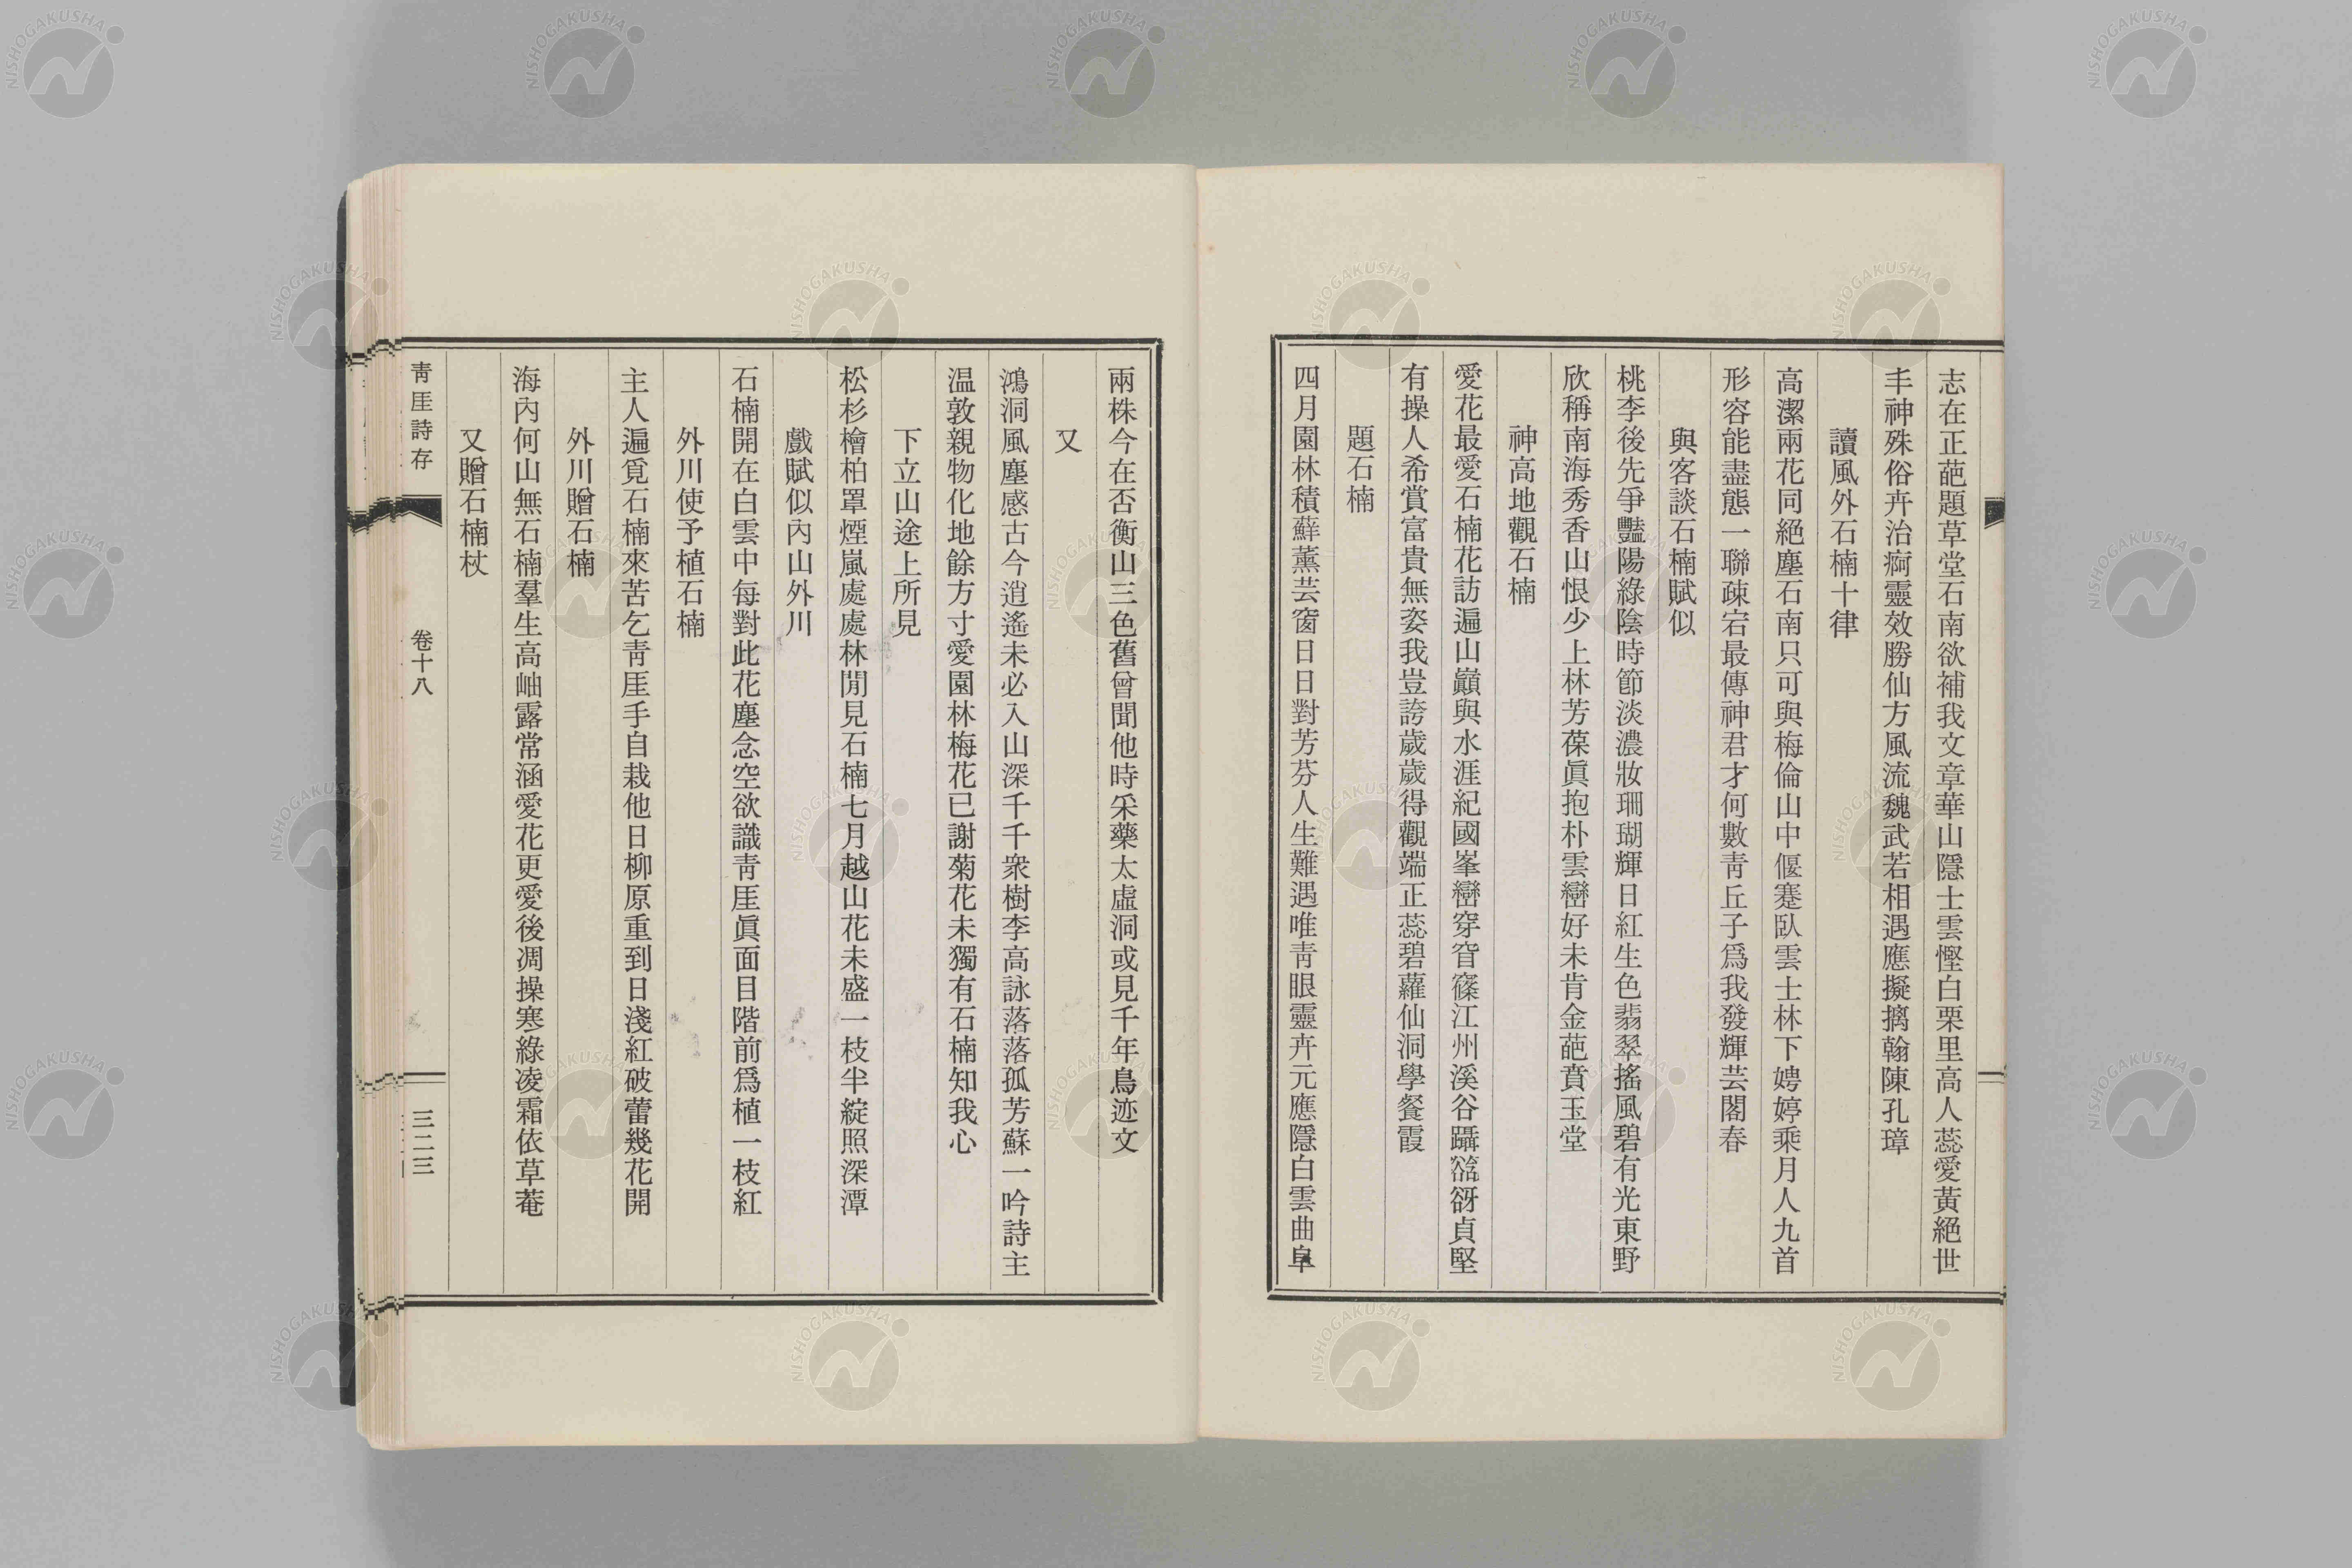 志在正葩題草堂石南欲補我文章華山隱士雲慳白栗里高人蕊愛黃絕世
丰神殊俗卉治痾靈效勝仙方風流魏武若相遇應擬摛翰陳孔璋
讀風外石楠十律
高潔兩花同絕塵石南只可與梅倫山中偃蹇臥雲士林下娉婷乘月人九首
形容能盡態一聯疎宕最傳神君才何數靑丘子爲我發輝芸閣春
與客談石楠賦似
桃李後先爭豔陽綠陰時節淡濃妝珊瑚輝日紅生色翡翠搖風碧有光東野
欣稱南海秀香山恨少上林芳葆眞抱朴雲巒好未肯金葩賁玉堂
神高地觀石楠
愛花最愛石楠花訪遍山巓與水涯紀國峯巒穿窅篠江州溪谷躡谽谺貞堅
有操人希賞富貴無姿我豈誇歲歲得觀端正蕊碧蘿仙洞學餐霞
題石楠
四月園林積蘚薰芸窗日日對芳芬人生難遇唯靑眼靈卉元應隱白雲曲阜
兩株今在否衡山三色舊曾聞他時采藥太虛洞或見千年鳥迹文
又
鴻洞風塵感古今逍遙未必入山深千千衆樹李高詠落落孤芳蘇一吟詩主
温敦親物化地餘方寸愛園林梅花已謝菊花未獨有石楠知我心
下立山途上所見
松杉檜柏罩煙嵐處處林閒見石楠七月越山花未盛一枝半綻照深潭
戲賦似內山外川
石楠開在白雲中每對此花塵念空欲識靑厓眞面目階前爲植一枝紅
外川使予植石楠
主人遍覓石楠來苦乞靑厓手自栽他日柳原重到日淺紅破蕾幾花開
外川贈石楠
海內何山無石楠羣生高岫露常涵愛花更愛後凋操寒綠凌霜依草菴
又贈石楠杖
靑厓詩存
卷十八
三二三
NISHOGAKUSHA